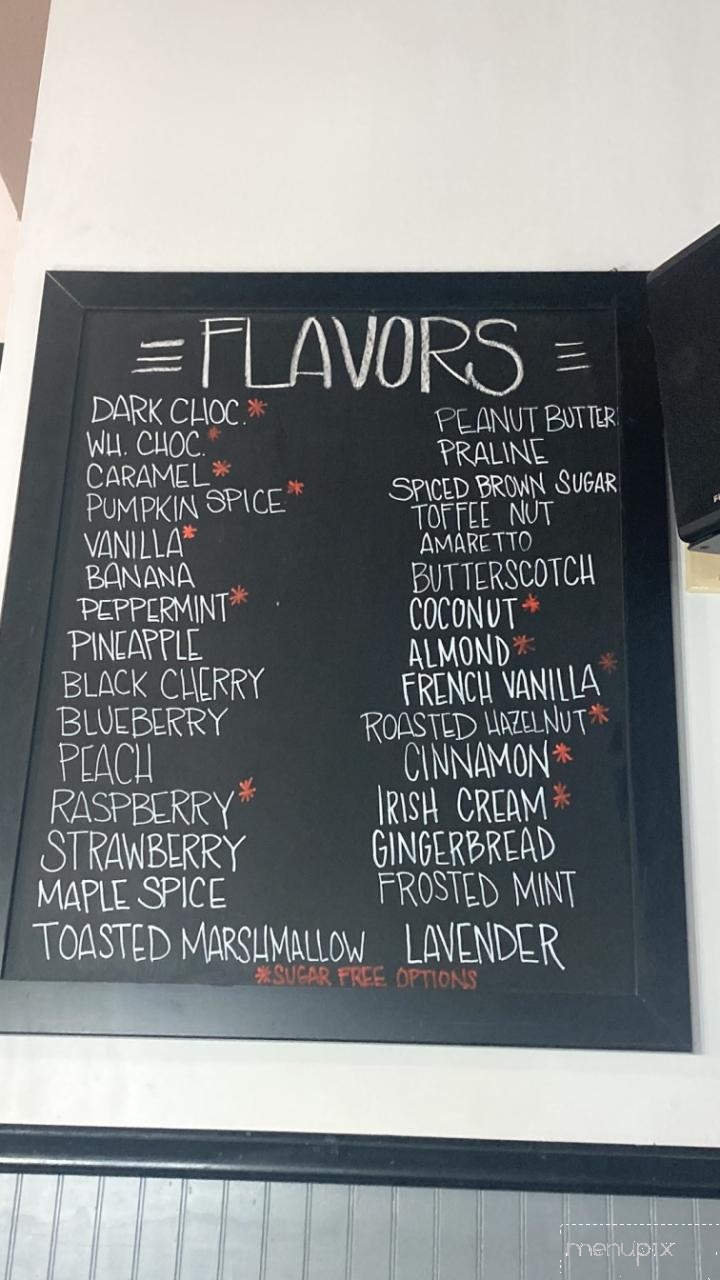 FLAVORS
DARK CHOC.*
WH. CHOC.*
CARAMEL*
PUMPKIN SPICE*
VANILLA*
BANANA
PEPPERMINT*
PINEAPPLE
BLACK CHERRY
BLUEBERRY
PEACH
RASPBERRY*
STRAWBERRY
MAPLE SPICE
TOASTED MARSHMALLOW
PEANUT BUTTER
PRALINE
SPICED BROWN SUGAR
TOFFEE NUT
AMARETTO
BUTTERSCOTCH
COCONUT*
ALMOND*
FRENCH VANILLA*
ROASTED HAZELNUT*
CINNAMON*
IRISH CREAM*
GINGERBREAD
FROSTED MINT
LAVENDER
*SUGAR FREE OPTIONS
menupix